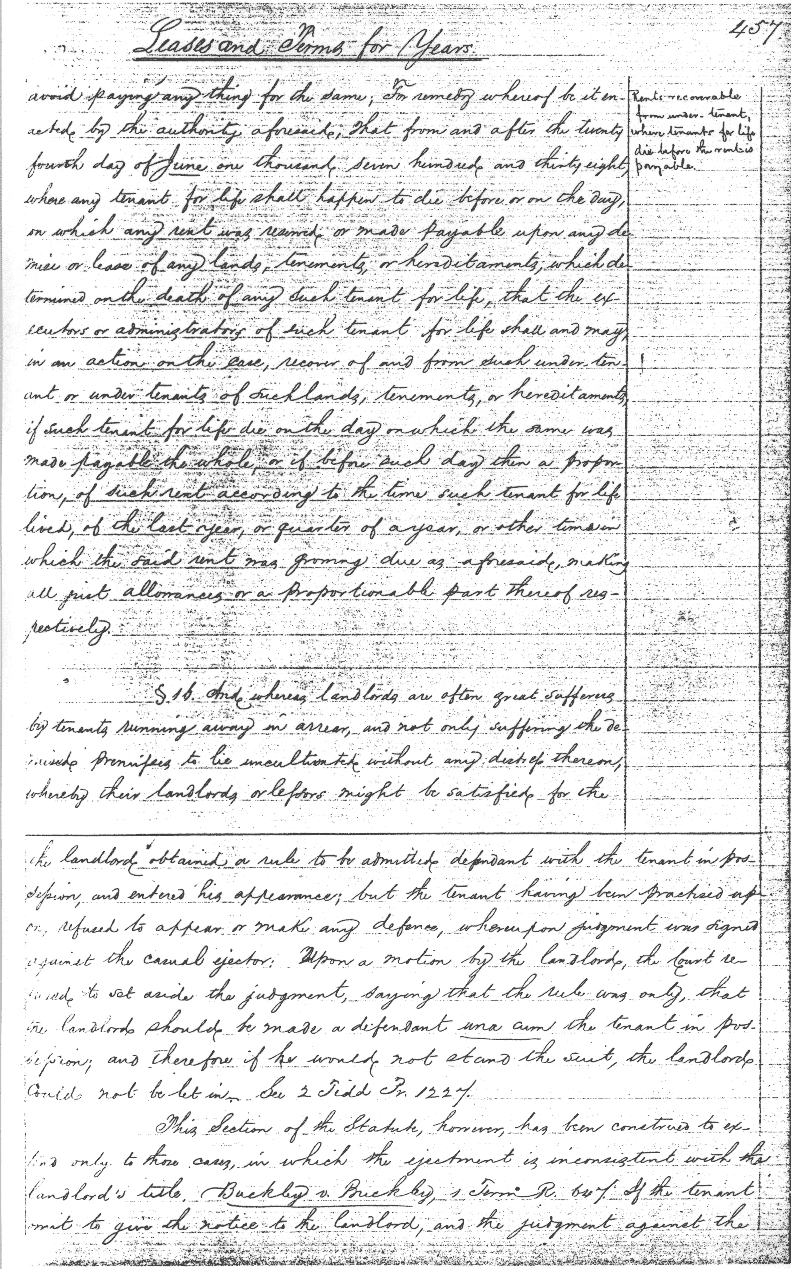 457
Leases and Terms for Years.
avoid paying any thing for the same; For remedy whereof be it en-
acted by the authority aforesaid, that from and after the twenty
fourth day of June one thousand seven hundred and thirty eight,
where any tenant for life shall happen to die before or on the day,
on which any rent was reserved, or made payable upon any de
mise or lease of any lands, tenements, or hereditaments, which de-
termined on the death of any such tenant for life, that the ex-
ecutors or administrators of such tenant for life shall and may,
in an action on the case, recover of and from such under-ten-
ant or under tenants of such lands, tenements, or hereditaments,
if such tenant for life die on the day on which the same was
made payable the whole, or if before such day then a propor-
tion, of such rent according to the time such tenant for life
lived, of the last year, or quarter of a year, or other time in
which the said rent was growing due as aforesaid, making
all just allowances or a proportionable part thereof res-
pectively.
Rents recoverable
from under-tenant,
where tenants for life
die before the rent is
payable.
§ 16. And whereas landlords are often great sufferers
by tenants running away in arrear, and not only suffering the de
mised premises to lie uncultivated without any distress thereon,
whereby their landlords or lessors might be satisfied for the
the landlord obtained a rule to be admitted defendant with the tenant in pos-
session, and entered his appearance; but the tenant having been practised up-
on, refused to appear or make any defence, whereupon judgment was signed
against the casual ejector: Upon a motion by the landlord, the Court re-
fused to set aside the judgment, saying that the rule was only, that
the landlord should be made a defendant una cum the tenant in pos-
session; and therefore if he would not stand the suit, the landlord
could not be let in. See 2 Tidd Pr. 1227.
This Section of the Statute, however, has been construed to ex-
tend only to those cases, in which the ejectment is inconsistent with the
landlord's title. Buckley v. Buckley, 1 Term R. 647. If the tenant
omit to give the notice to the landlord, and the judgment against the